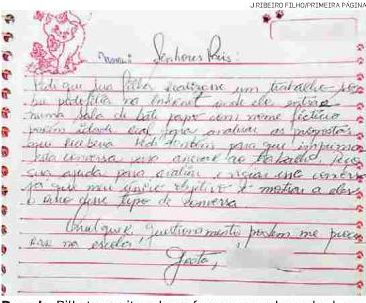 J.RIBEIRO FILHO/PRIMEIRA PÁGINA
Senhores Pais:
Pedi que sua filha realizasse um trabalho so-
bre pedofilia na internet onde ele entrão
numa sala de bate papo com nome fictício
porém idade real para analisar as propostas
que receberá. Pedi também para que imprima
esta conversa para anexar ao trabalho, peço
sua ajuda para avaliar e vigiar essa conversa
já que meu único objetivo é mostrar a eles
o risco desse tipo de conversa
Qualquer questionamento podem me procu
rar na escola.
Grata,